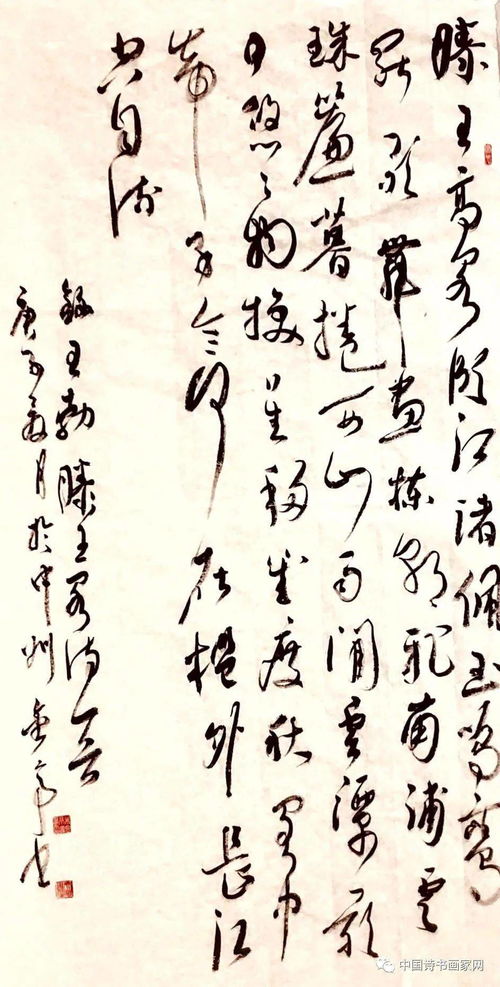 滕王高阁临江渚佩玉鸣鸾
罢歌舞画栋朝飞南浦云
珠簾暮捲西山雨闲云潭影
日悠々物换星移几度秋阁中
帝子今何在槛外長江
空自流
録王勃滕王阁诗一首
庚子夏月於中州
中国诗书画家网